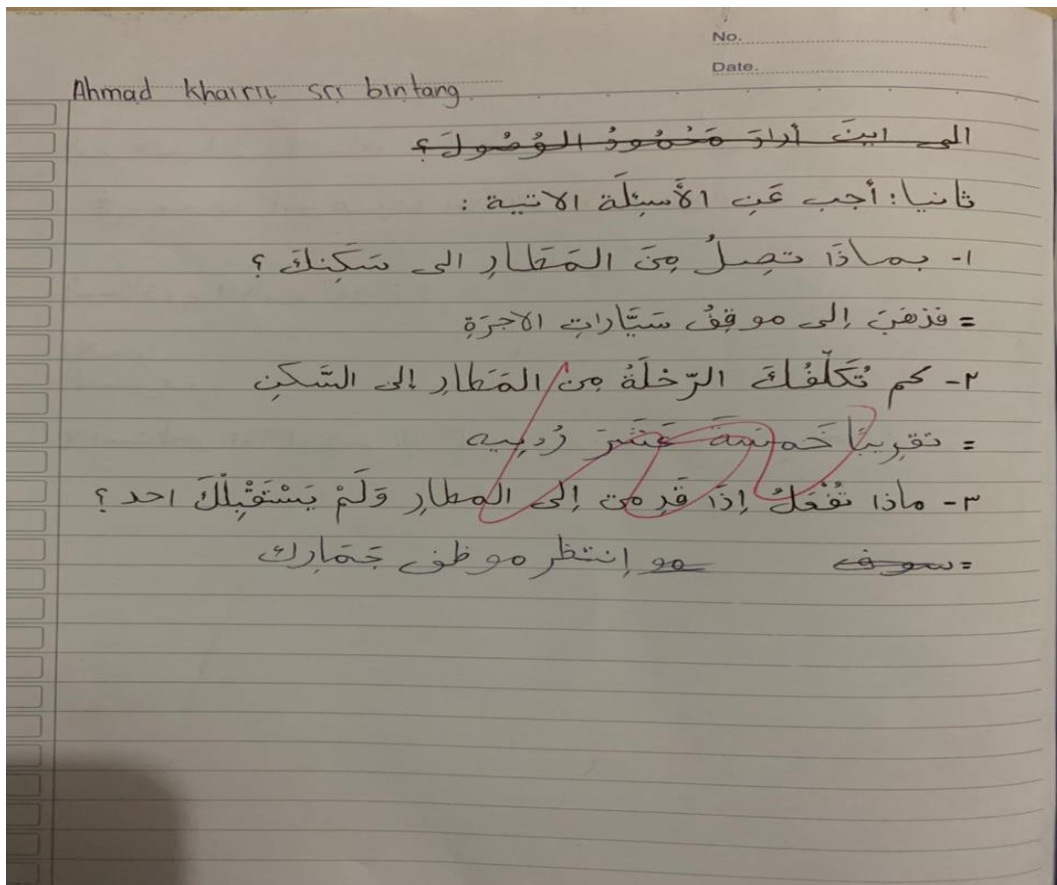 No.
Date.
Ahmad khairil sri bintang
الى اينَ أرادَ مَحْمُودُ الوُصُولَ؟
ثانيا: أجب عَنِ الأَسئِلَة الاتية :
١- بماذَا تصِلُ مِنَ المَطَارِ الى سَكَنِكَ ؟
= فذهَبَ إلى موقِفُ سَيَّاراتِ الاجرَةِ
٢- كم تُكَلّفُكَ الرّحْلَةُ مِنَ المَطارِ إلى السَّكَنِ
= تقرِيبًا خَمسَةَ عَشَرَ رُدبِيه
٣- ماذا تَفْعَلُ إذَا قَدِمتَ إلى المطارِ وَلَمْ يَسْتَقْبِلْكَ احد ؟
= سوف مو إنتظر موظف جَمَارِك